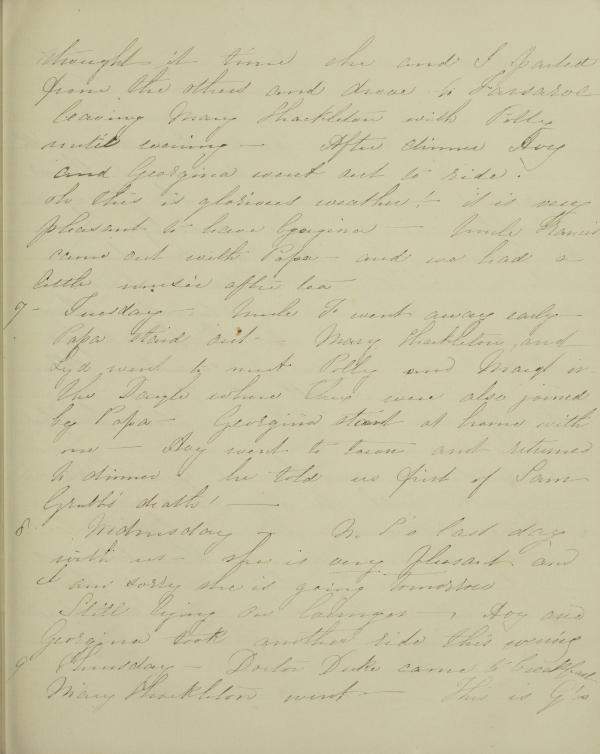 thought it time she and I parted
from the others and drove to Fassaroe
leaving Mary Shackleton with Polly
until evening — After dinner Hoy
and Georgina went out to ride.
oh this is glorious weather! it is very
pleasant to have Georgina — Uncle Francis
came out with Papa — and we had a
little music after tea
7 — Tuesday — Uncle F went away early
Papa staid out — Mary Shackleton and
Lyd went to meet Polly and Margt in
the Dargle where they were also joined
by Papa — Georgina staid at home with
me — Hoy went to town and returned
to dinner he told us first of Sam
Grubb's death! —
8. Wednesday — M S's last day
with us — she is very pleasant and
I am sorry she is going tomorrow
Still lying on lounges — Hoy and
Georgina took another ride this evening
9 Thursday — Doctor Duke came to breakfast
Mary Shackleton went — This is G's